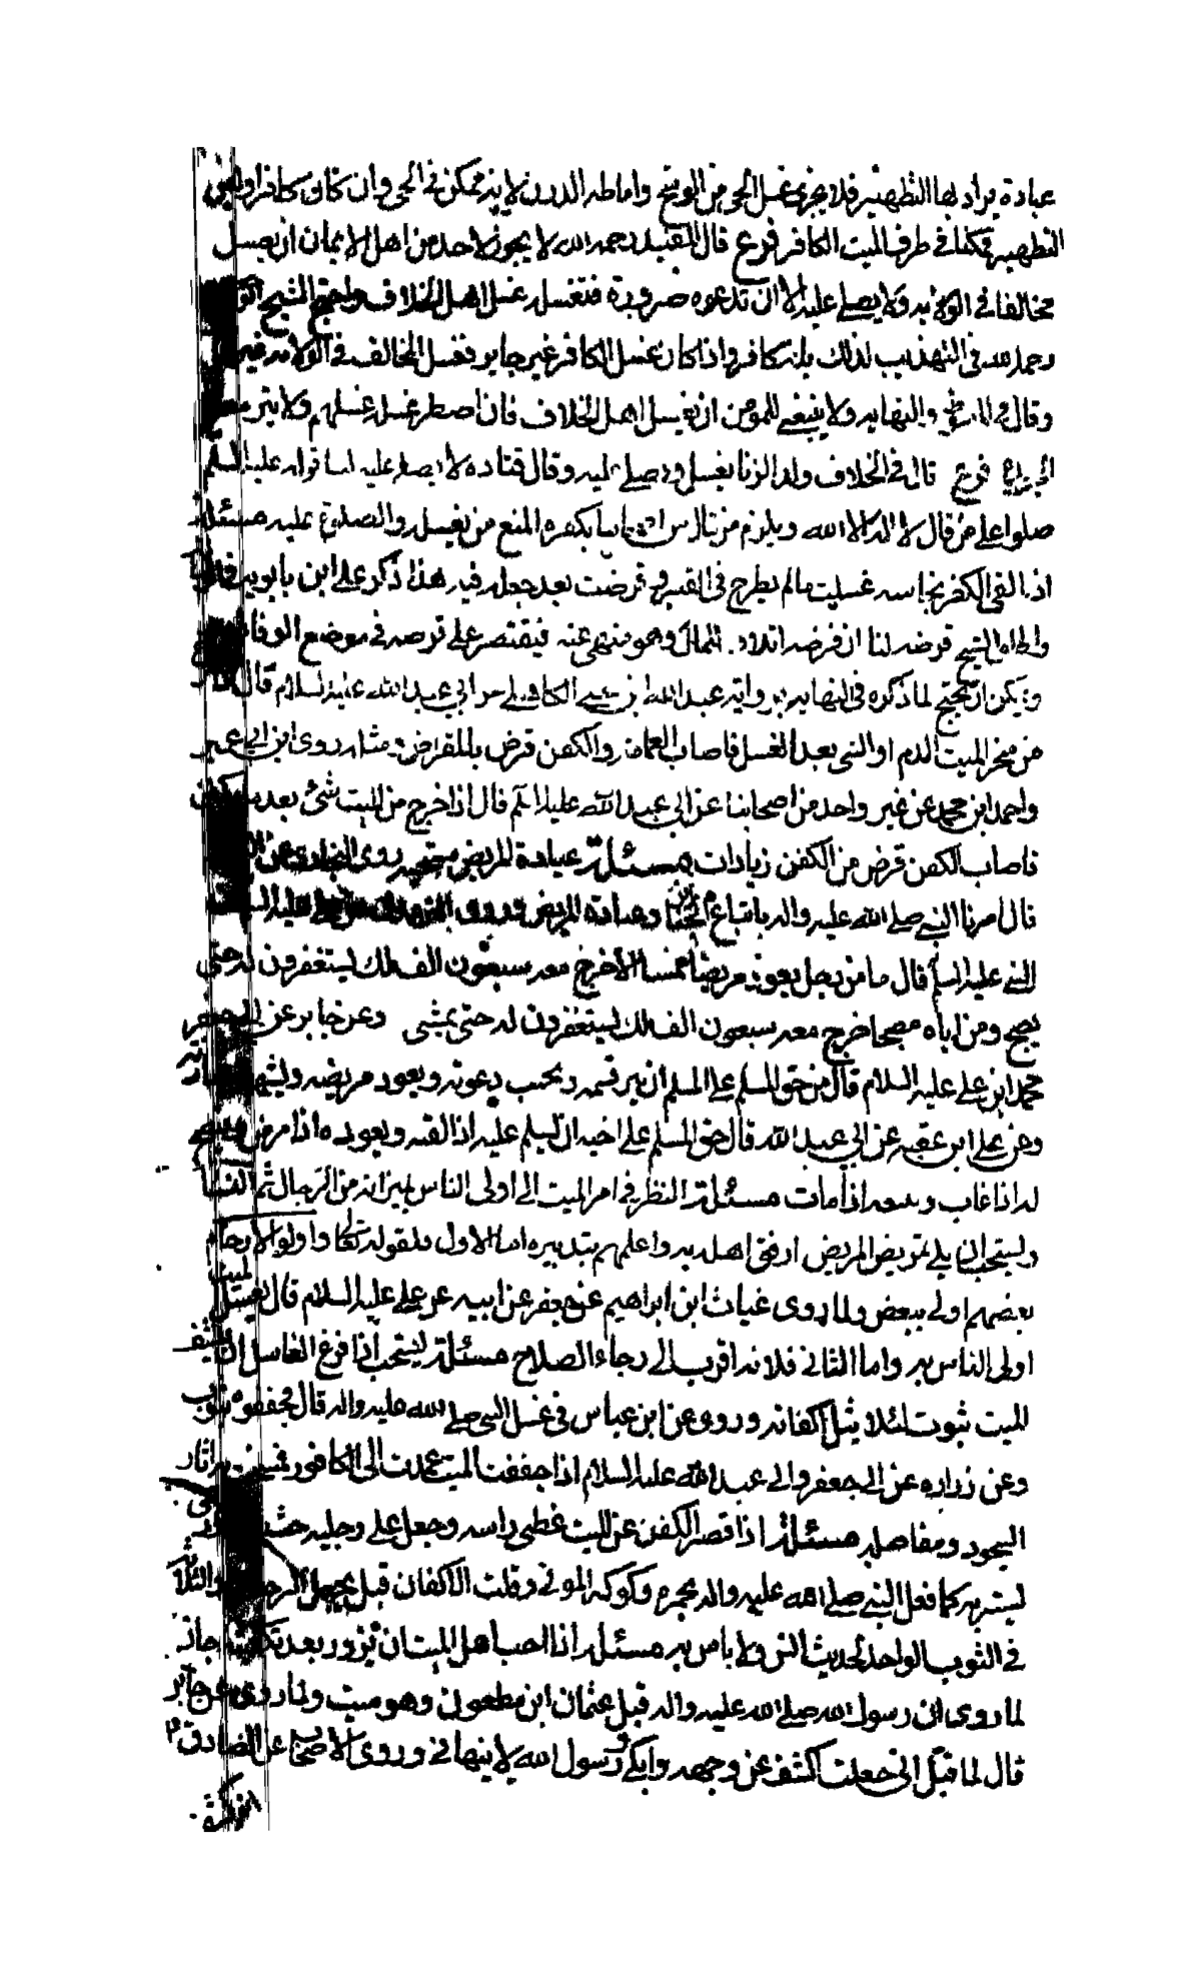 عبادة يراد بها التطهير فلا يجزى غسل الحى من الوسخ واماطه الدرن لانه ممكن فى الحى وان كان كافرا وليس
التطهير ممكنا فى طرف الميت الكافر فرع قال المفيد رحمه الله لا يجوز لاحد من اهل الايمان ان يغسل
مخالفا فى الولايه ولا يصلى عليه الا ان تدعوه ضرورة فتغسله غسل اهل الخلاف واحتج الشيخ
رحمه الله فى التهذيب لذلك بانه كافر واذا كان غسل الكافر غير جايز فغسل المخالف فى الولايه غير
وقال فى والنهايه ولا ينبغى للمومن ان يغسل اهل الخلاف فان اضطر غسله غسلهم ولا يترك معه
فرع قال فى الخلاف ولد الزنا يغسل ويصلى عليه وقال قتاده لا يصلى عليه لنا قوله عليه السلم
صلوا على من قال لا اله الا الله ويلزم من قال من بكفره المنع من تغسيله والصلوة عليه مسئلة
اذا لقى الكفن نجاسه غسلت ما لم يطرح فى القبر وقرضت بعد جعله فيه هذا ذكر على ابن بابويه
الشيخ قرضه لنا ان قرضه اتلاف للمال وهو منهى عنه فيقتصر على قرضه فى موضع الوفاق
ويمكن ان يحتج لما ذكره فى النهايه بروايه عبد الله ابن يحيى الكاهلى عن ابى عبد الله عليه السلام قال اذا
من منخر الميت الدم او الشى بعد الغسل فاصاب العمامة والكفن قرض بالمقراض ومثله روى ابن ابى عمير
واحمد ابن محمد عن غير واحد من اصحابنا عن ابى عبد الله عليه السلم قال اذا خرج من الميت شئ بعد ما
فاصاب الكفن قرض من الكفن زيادات مسئلة عيادة المريض مستحبه روى البخارى عن
قال امرنا النبى صلى الله عليه واله باتباع الجنايز وعيادة المريض وروى عليه
النبى عليه السلم قال ما من رجل يعود مريضا ممسيا الا خرج معه سبعون الف ملك يستغفرون له حتى
يصبح ومن اتاه مصبحا خرج معه سبعون الف ملك يستغفرون له حتى يمشى وعن جابر عن ابى جعفر
محمد ابن على عليه السلام قال من حق المسلم على المسلم ان يبر قسمه ويجيب دعوته ويعود مريضه ويشهد
وعن على ابن عقبه عن ابى عبد الله قال حق المسلم على اخيه ان يسلم عليه اذا لقيه ويعوده اذا مرض
له اذا غاب اذا مات مسئلة النظر فى امر الميت الى اولى الناس بميراثه من الرجال ثم النسا
ويستحب ان يلى تمريض المريض ارفق اهله به واعلمهم بتدبيره اما الاول فلقوله تعالى واولوا الارحام
بعضهم اولى ببعض ولما روى غياث ابن ابراهيم عن جعفر عن ابيه عن على عليه السلام قال يغسل الميت
اولى الناس به واما الثانى فلانه اقرب الى رجاء الصلاح مسئلة يستحب اذا فرغ الغاسل ان ينشف
الميت بثوب لئلا يبتل اكفانه وروى عن ابن عباس فى غسل النبى صلى الله عليه واله قال فجففوه بثوب
وعن زراره عن ابى جعفر وابى عبد الله عليه السلام اذا جففت الميت عمدت الى الكافور فمسحت به اثار
السجود ومفاصله مسئلة اذا قصر الكفن عن الميت غطى راسه وجعل على رجليه
ليستر به كما فعل النبى صلى الله عليه واله بحمزه ولو كثر الموتى وقلت الاكفان قيل يجعل الرجلان والثلاثة
فى الثوب الواحد لحديث انس ولا باس به مسئلة اذا احب اهل الميت ان يزور بعد جاز
لما روى ان رسول الله صلى الله عليه واله قبل عثمان ابن مظعون وهو ميت ولما روى عن جابر
قال لما قتل ابى جعلت اكشف عن وجهه وابكى ورسول الله لا ينهانى وروى الاصحاب عن الصادق